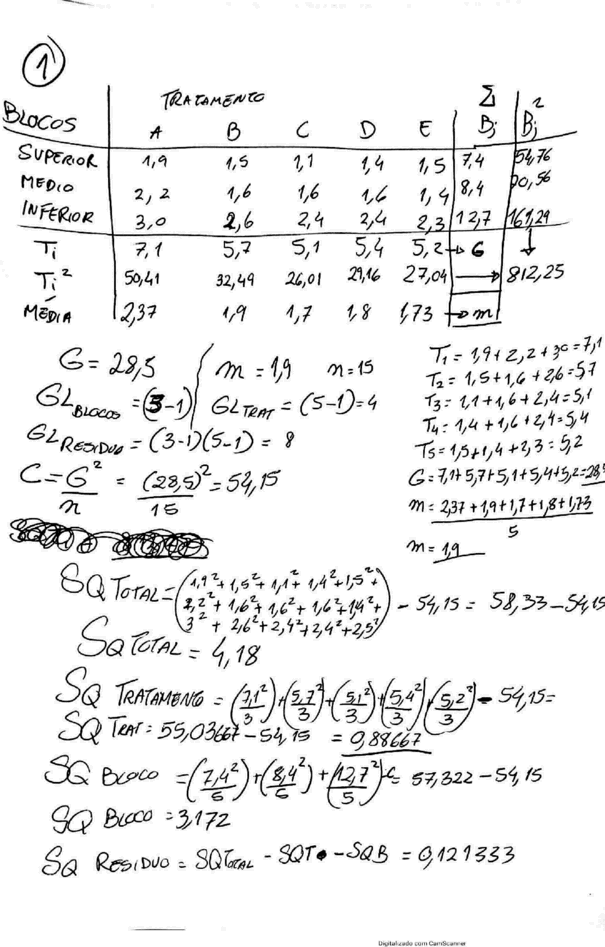 1
TRATAMENTO Σ 2
BLOCOS A B C D E Bj Bj
SUPERIOR 1,9 1,5 1,1 1,4 1,5 7,4 54,76
MEDIO 2,2 1,6 1,6 1,6 1,4 8,4 70,56
INFERIOR 3,0 2,6 2,4 2,4 2,3 12,7 161,29
Ti 7,1 5,7 5,1 5,4 5,2 → G ↓
Ti² 50,41 32,49 26,01 29,16 27,04 → 812,25
MÉDIA 2,37 1,9 1,7 1,8 1,73 → m
G = 28,5 m = 1,9 n = 15
GL BLOCOS = (3-1) GL TRAT = (5-1) = 4
GL RESIDUO = (3-1)(5-1) = 8
C = G²/n = (28,5)²/15 = 54,15
T1 = 1,9 + 2,2 + 3,0 = 7,1
T2 = 1,5 + 1,6 + 2,6 = 5,7
T3 = 1,1 + 1,6 + 2,4 = 5,1
T4 = 1,4 + 1,6 + 2,4 = 5,4
T5 = 1,5 + 1,4 + 2,3 = 5,2
G = 7,1 + 5,7 + 5,1 + 5,4 + 5,2 = 28,5
m = 2,37 + 1,9 + 1,7 + 1,8 + 1,73
5
m = 1,9
SQ TOTAL = (1,9² + 1,5² + 1,1² + 1,4² + 1,5² +
2,2² + 1,6² + 1,6² + 1,6² + 1,4² + - 54,15 = 58,33 - 54,15
3² + 2,6² + 2,4² + 2,4² + 2,3²)
SQ TOTAL = 4,18
SQ TRATAMENTO = (7,1²/3) + (5,7²/3) + (5,1²/3) + (5,4²/3) + (5,2²/3) - 54,15 =
SQ TRAT = 55,03667 - 54,15 = 0,88667
SQ BLOCO = (7,4²/5) + (8,4²/5) + (12,7²/5) - C = 57,322 - 54,15
SQ BLOCO = 3,172
SQ RESIDUO = SQ TOTAL - SQT - SQB = 0,121333
Digitalizado com CamScanner